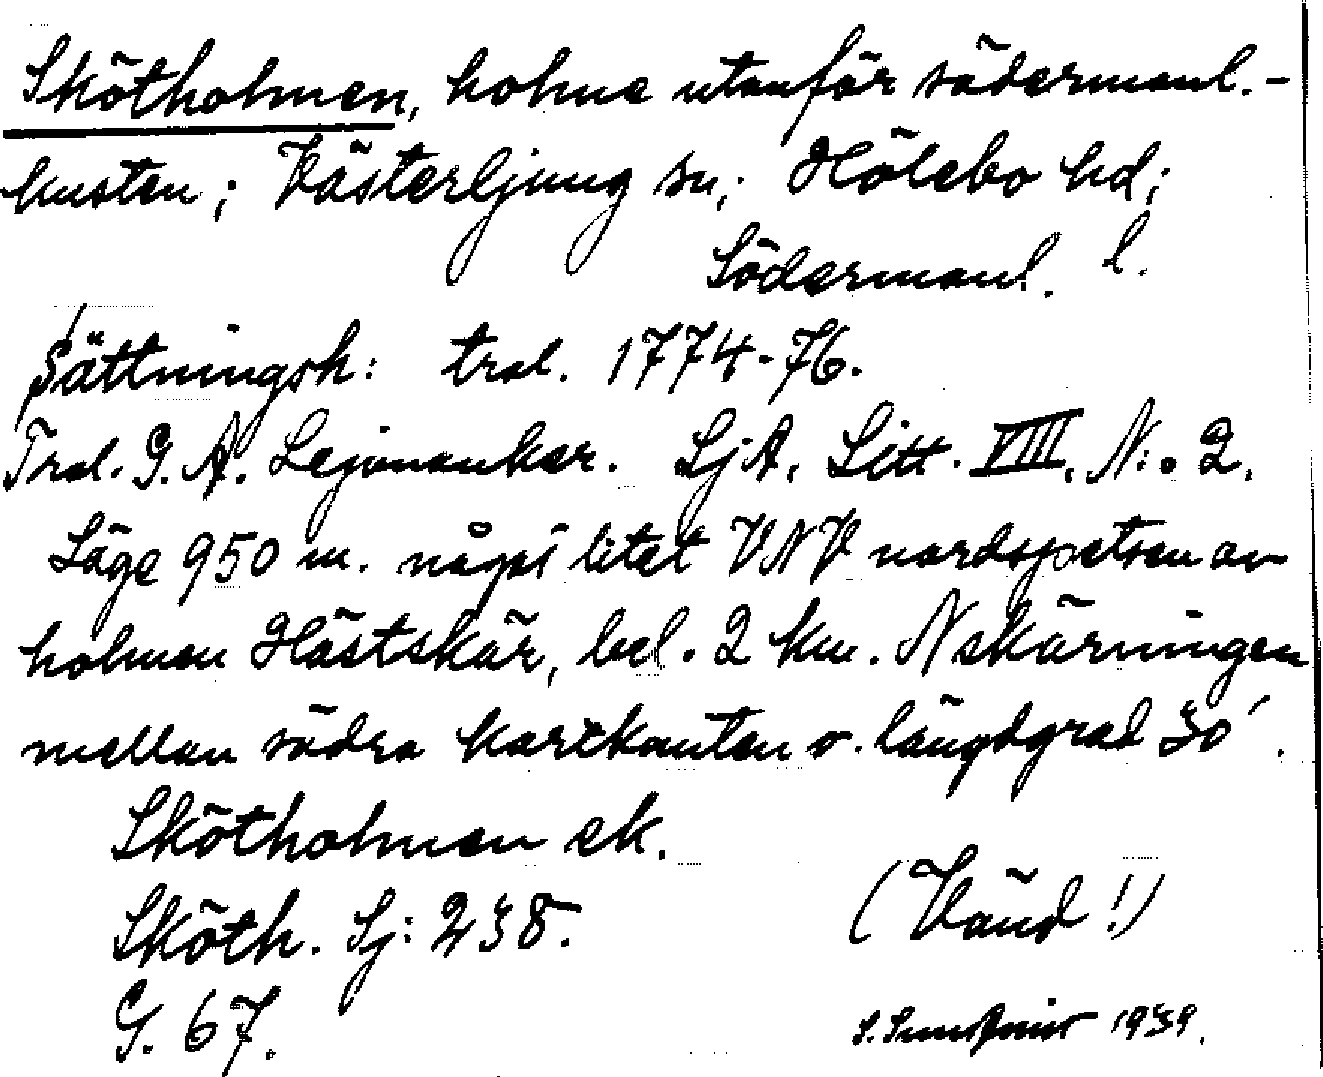 Skötholmen, holme utanför södermanl.-
kusten; Västerljung sn; Hölebo hd;
Södermanl. l.
Sättningsk: trol. 1774-76.
Trol. G. A. Lejonankar. SjA, Litt. VIII, N:o 2.
Läge 950 m. något litet VNV nordspetsen av
holmen Hästskär, bel. 2 km. N skärningen
mellan södra kartkanten o. längdgrad 30'.
Skötholmen ek.
Sköth. Sj: 238.
G. 67.
(Vänd!)
1939.